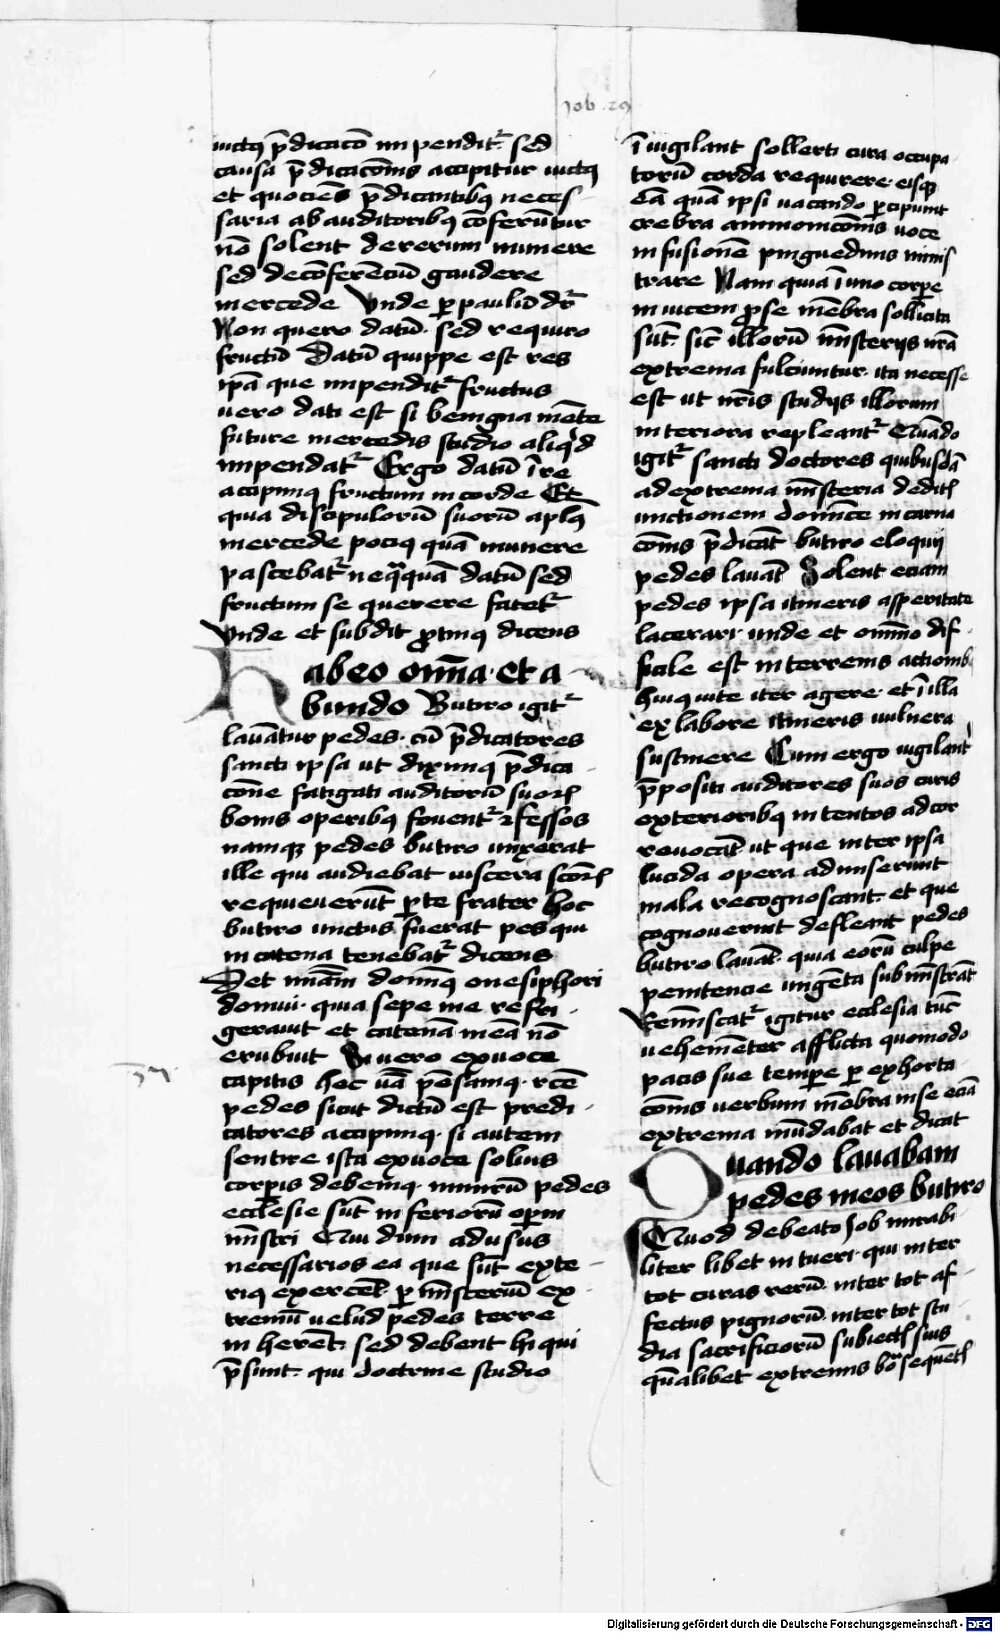 Job .29
uictus p̄dicacō impendit᷑ sed
causa p̄dicacōnis accipitur uictus
et quociēs p̄dicantibꝰ neces-
saria ab auditoribꝰ cōferūtur
nō solent de rerum munere
sed de cōferēciū gaudere
mercede Vnde per paulū dr̄
Non quero datū· sed requiro
fructū Datū quippe est res
ip̄a que impendit᷑ fructus
uero dati est si benigna mēte
future mercedis studio aliqͥd
impendat᷑ Ergo datū ī re
accipimꝰ fructum in corde Et
quia discipulorū suorū aplꝰ
mercede pociꝰ quā munere
pascebat᷑ neqͣquā datū sed
fructum se querere fatet᷑
Vnde et subdit ꝓtinꝰ dicens
Habeo om̄ia· et a-
bundo Butiro igit᷑
lauātur pedes· cū p̄dicatores
sancti ipsa ut diximꝰ p̄dica-
cōne fatigati auditorū suoꝝ
bonis operibꝰ fouent᷑ ⁊ fessos
namqꝫ pedes butiro unxerat
ille qui audiebat uiscera scōꝝ
requieuerūt ꝑ te frater hoc
butiro unctus fuerat pes qui
in catena tenebat᷑ dicens
Det mīam domīꝰ onesiphori
domui· quia sepe me refri-
gerauit et catenā meā nō
erubuit Si uero ex uoce
capitis hec uā pēsamꝰ· rcē
pedes sicut dictū est predi-
catores accipimꝰ· si autem
sentire ista ex uoce solius
corpis debemꝰ· nimirū pedes
ecclesie sūt inferiorū operū
mīstri Qui dum ad usus
necessarios ea que sūt exte-
riꝰ exercēt· ꝑ mīsteriū ex-
tremū uelud pedes terre
inherēt· sed debent hi qui
p̄sunt· qui doctrine studio
īuigilant sollerti cura occupa-
torū corda requirere· eisqꝫ
eā quā ipsi uacando ꝑcipiunt
crebra ammonicōnis uoce
infusionē pinguedinis minis-
trare Nam quia ī uno corꝑe
inuicem ꝓ se mēbra sollicita
sūt· sic̄ illorū mīsterijs nr̄a
extrema fulciuntur· ita necesse
est ut nr̄is studijs illorum
interiora repleant᷑ Quādo
igit᷑ sancti doctores quibusdā
ad extrema mīsteria deditꝭ
unctionem domīce incarna-
cōnis p̄dicāt butiro eloquij
pedes lauāt Solent eciam
pedes ipsa itineris asperitate
lacerari· unde et om̄ino dif-
ficile est in terrenis actionibꝰ
huiꝰ uite iter agere· et ī illa
ex labore itineris uulnera
sustinere Cum ergo uigilant᷑
p̄positi auditores suos curis
exterioribꝰ intentos ad cor
reuocāt ut que inter ipsa
lucida opera admiserunt
mala recognoscant· et que
cognouerint defleant pedes
butiro lauāt· quia eorū culpe
penitencie ungēta submīstrāt
Remīscat᷑ igitur ecclesia tūc
uehemēter afflicta quomodo
pacis sue tempe ꝑ exhorta-
cōnis uerbum mēbra in se eciā
extrema mūdabat et dicat
Quando lauabam
pedes meos butiro
Quod de beato Job mirabi-
liter libet intueri· qui inter
tot curas rerū· inter tot af-
fectus pignorū· inter tot stu-
dia sacrificiorū subiectꝭ suis
quālibet extremis bōa sequētꝭ
Digitalisierung gefördert durch die Deutsche Forschungsgemeinschaft - DFG